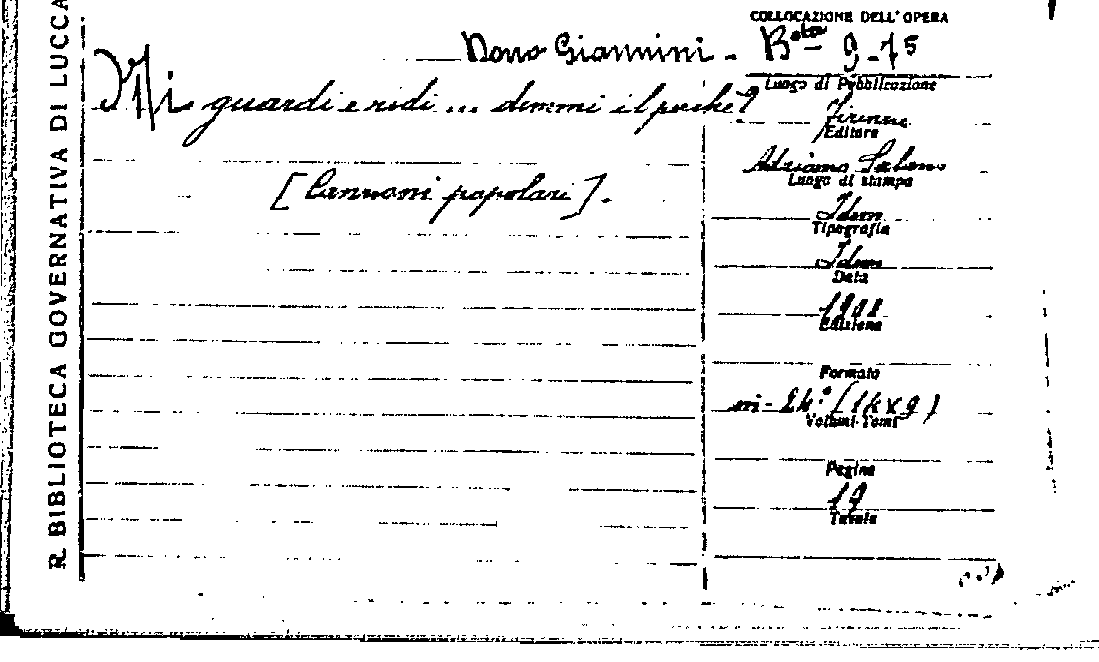 R. BIBLIOTECA GOVERNATIVA DI LUCCA
COLLOCAZIONE DELL' OPERA
Dono Giannini - Bta 9-75
Mi guardi e ridi ... dimmi il perchè?
[Canzoni popolari].
Luogo di Pubblicazione
Firenze
Editore
Adriano Salani
Luogo di stampa
Idem
Tipografia
Idem
Data
1908
Edizione
Formato
in-24.° (14x9)
Volumi-Tomi
Pagine
Tavole